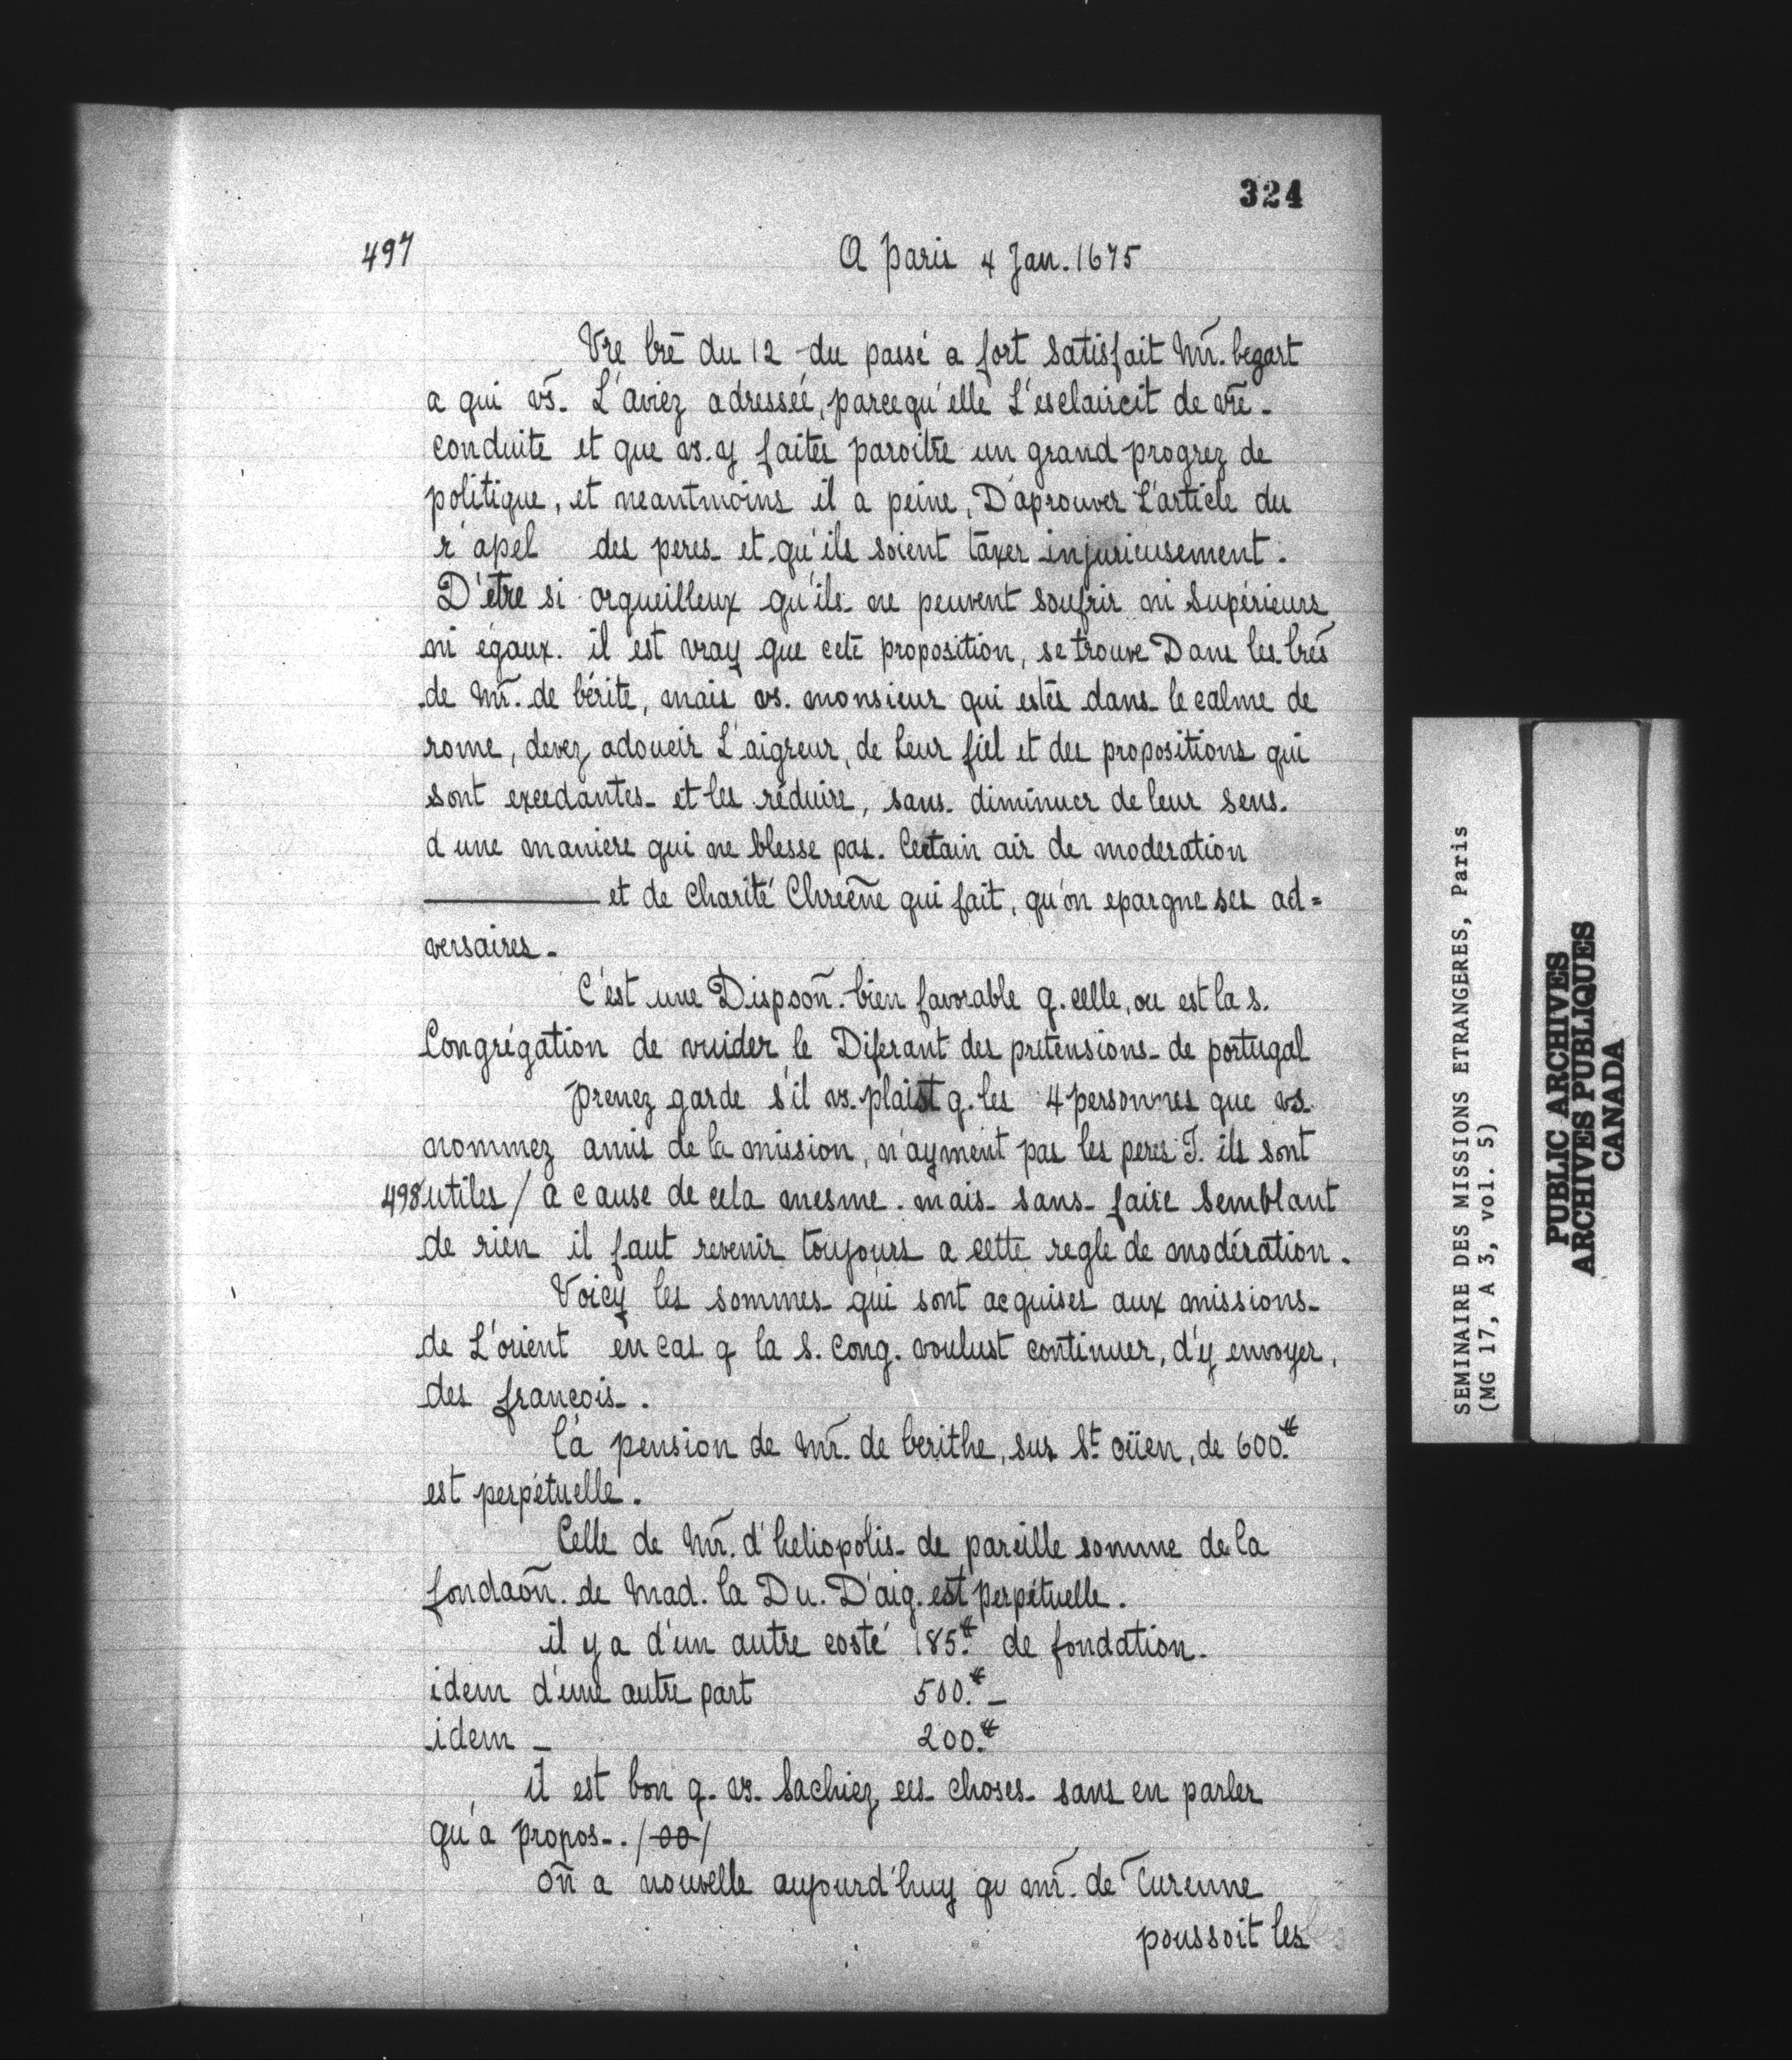 324
497
A Paris 4 Jan. 1675
Vre lrē du 12 du passé a fort satisfait Mr̃. begart
a qui vs̃. L'aviez adresseé, parcequ'elle L'esclaircit de vrē.
conduite et que vs. y faites paroitre un grand progrez de
politique, et neantmoins il a peine, D'aprouver L'article du
r'apel des peres et qu'ils soient taxer injurieusement.
D'être si orgueilleux qu'ils ne peuvent soufrir ni Supérieurs
ni égaux. il est vray que cete proposition, se trouve Dans les lrēs
de Mr̃. de bérite, mais vs. monsieur qui estes dans le calme de
rome, devez adoucir L'aigreur, de Leur fiel et des propositions qui
sont excedantes et les réduire, sans diminuer de leur sens.
d'une maniere qui ne blesse pas. Certain air de moderation
et de Charité Chrēēne qui fait, qu'on epargne ses ad=
versaires.
C'est une Dispoōn. bien favorable q. celle, ou est la s.
Congrégation de vuider le Diferant des pretensions de portugal
Prenez garde s'il vs. plaist q. les 4 personnes que vs.
nommez amis de la mission, n'ayment pas les peres J. ils sont
498 utiles / a cause de cela mesme. mais sans faire semblant
de rien il faut revenir toujours a cette regle de modération.
Voicy les sommes qui sont acquises aux missions
de L'orient en cas q la S. Cong. voulust continuer, d'y envoyer,
des françois.
La pension de Mr̃. de berithe, sur St oüen, de 600.#
est perpétuelle.
Celle de Mr̃. d'heliopolis de pareille somme de la
fondaōn. de Mad. la Du. D'aig. est perpétuelle.
il y a d'un autre costé 185.# de fondation.
idem d'une autre part 500.# _
idem _ 200.#
il est bon q. vs. Sachiez ces choses sans en parler
qu'a propos. /00/
on̄ a nouvelle aujourd'huy qu mr̃. de Turenne
poussoit les
SEMINAIRE DES MISSIONS ETRANGERES, Paris
(MG 17, A 3, vol. 5)
PUBLIC ARCHIVES
ARCHIVES PUBLIQUES
CANADA